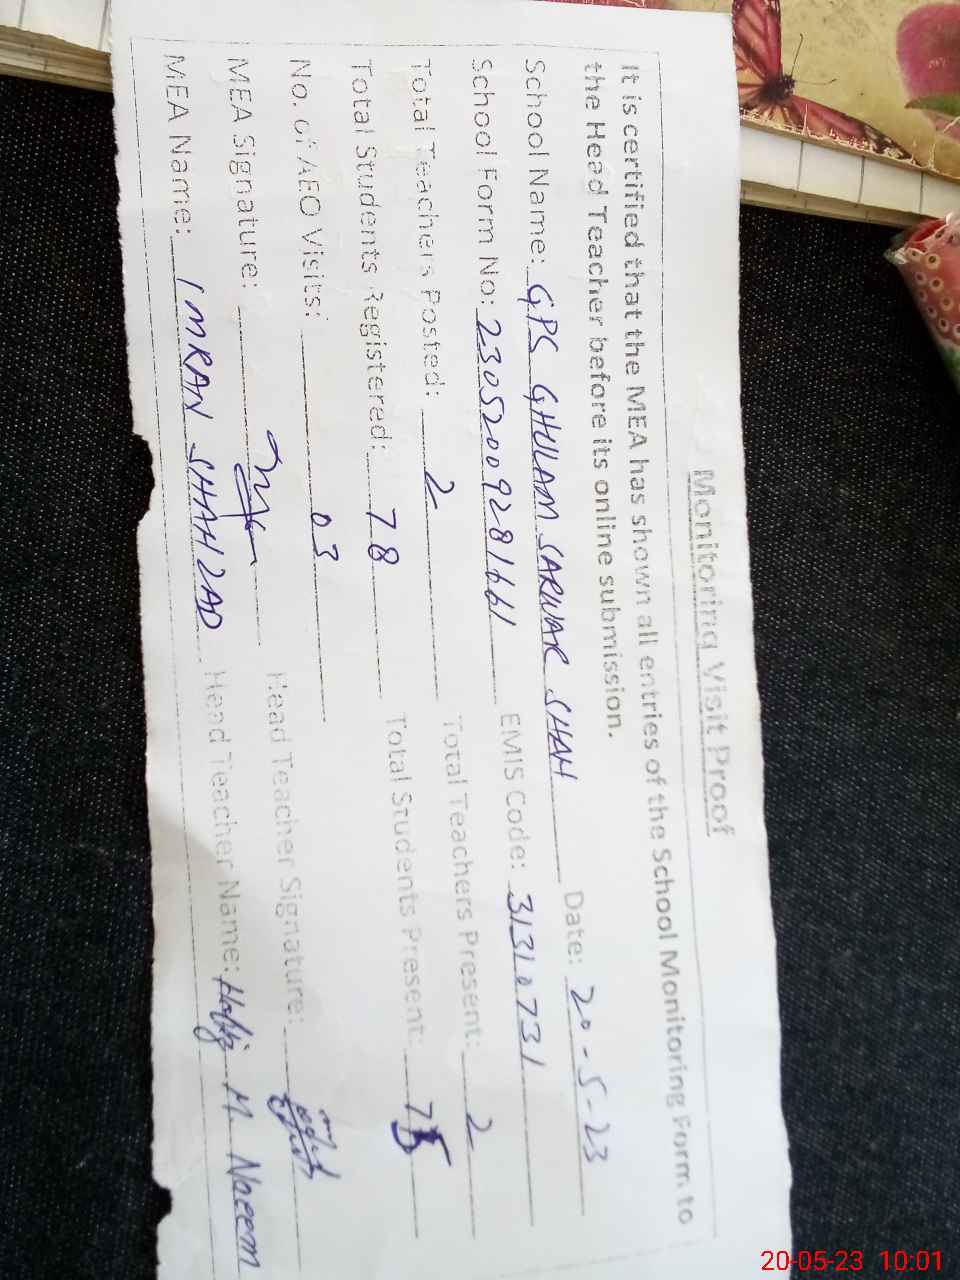 Monitoring Visit Proof
It is certified that the MEA has shown all entries of the School Monitoring Form to
the Head Teacher before its online submission.
School Name: GPS GHULAM SARWAR SHAH Date: 20-5-23
School Form No: 23052009281661 EMIS Code: 31310731
Total Teachers Posted: 2 Total Teachers Present: 2
Total Students Registered: 78 Total Students Present: 75
No. of AEO Visits: 03
MEA Signature: Head Teacher Signature:
MEA Name: IMRAN SHAHZAD Head Teacher Name: Hafiz M. Naeem
20-05-23 10:01